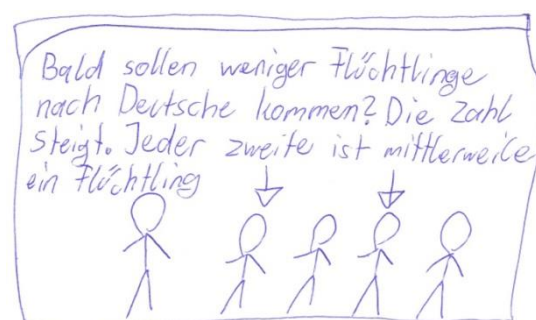 Bald sollen weniger Flüchtlinge
nach Deutsche kommen? Die Zahl
steigt. Jeder zweite ist mittlerweile
ein Flüchtling